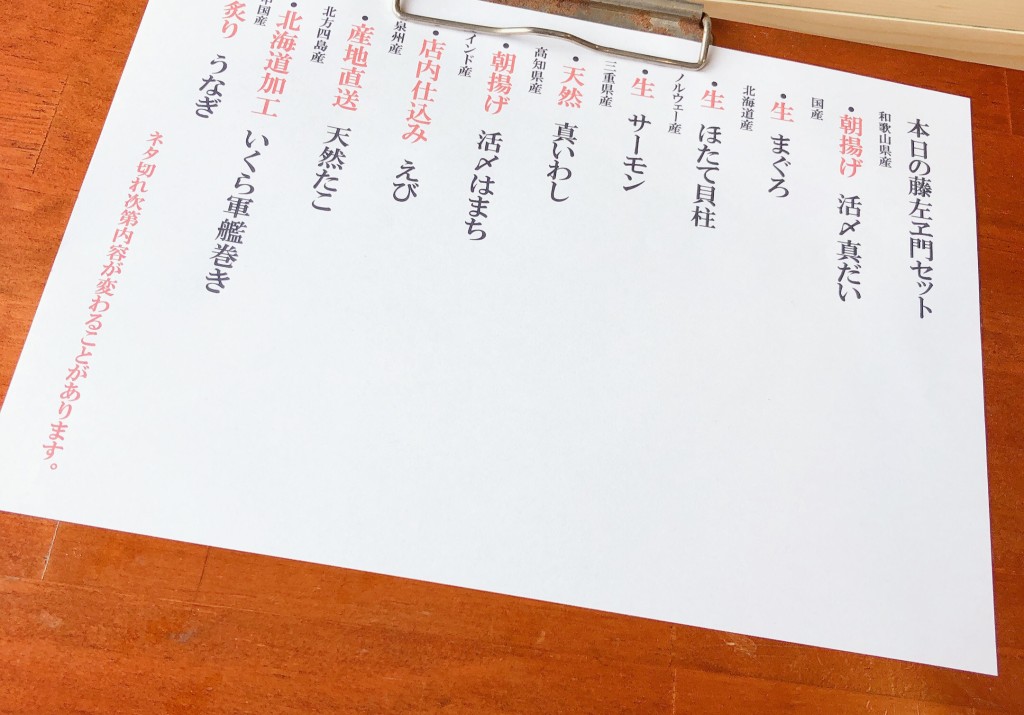 本日の藤左ヱ門セット
和歌山県産
・朝揚げ 活〆真だい
国産
・生 まぐろ
北海道産
・生 ほたて貝柱
ノルウェー産
・生 サーモン
三重県産
・天然 真いわし
高知県産
・朝揚げ 活〆はまち
インド産
・店内仕込み えび
泉州産
・産地直送 天然たこ
北方四島産
・北海道加工 いくら軍艦巻き
中国産
炙り うなぎ
ネタ切れ次第内容が変わることがあります。